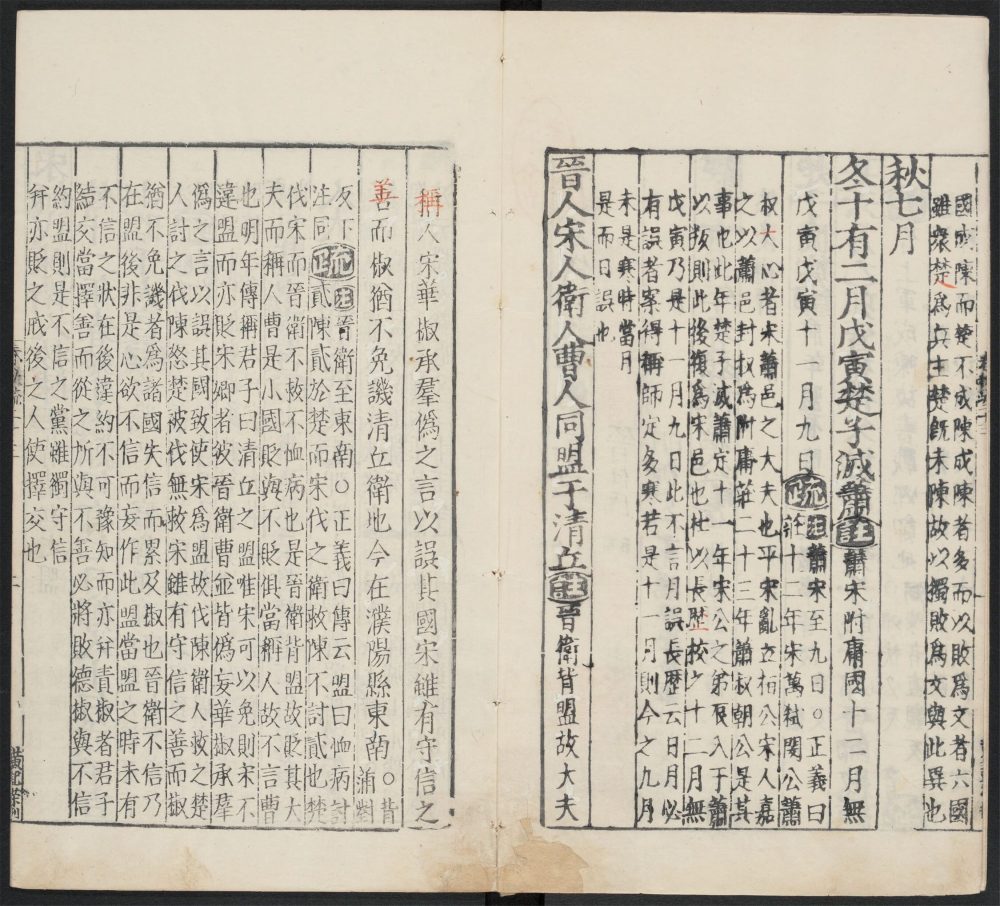 國或陳而楚不成陳成陳者多而以敗爲文者六國
雖衆楚爲兵主楚既未陳故以獨敗爲文與此異也
秋七月
冬十有二月戊寅楚子滅蕭註蕭宋附庸國十二月無
戊寅戊寅十一月九日疏註蕭宋至九日○正義曰
莊十二年宋萬弒閔公蕭
叔大心者宋蕭邑之大夫也平宋亂立桓公宋人嘉
之以蕭邑封叔爲附庸莊二十三年蕭叔朝公是其
事也此年楚子滅蕭定十一年宋公之弟辰入于蕭
以叛則此後復爲宋邑也杜以長歷校之十二月無
戊寅乃是十一月九日此不言月誤長歷云日月必
有誤者案傳稱師定多寒若是十一月則今之九月
未是寒時當月
是而日誤也
晉人宋人衛人曹人同盟于清丘註晉衛背盟故大夫
稱人宋華椒承羣僞之言以誤其國宋雖有守信之
善而椒猶不免譏清丘衛地今在濮陽縣東南○背
蒲對
反下
注同疏註晉衛至東南○正義曰傳云盟曰恤病討
貳陳貳於楚而宋伐之衛救陳不討貳也楚
伐宋而晉衛不救不恤病也是晉衛背盟故貶其大
夫而稱人曹是小國貶與不貶俱當稱人故不言曹
也明年傳稱君子曰清丘之盟惟宋可以免則宋不
違盟而亦貶宋卿者彼晉衛曹並皆僞妄華椒承羣
僞之言以誤其國致使宋爲盟故伐陳衛人救之楚
人討之伐陳怒楚被伐無救宋雖有守信之善而椒
猶不免譏者爲諸國失信而累及椒也晉衛不信乃
在盟後非是心欲不信而妄作此盟當盟之時未有
不信之狀在後違約不可豫知而亦并責椒者君子
結交當擇善而從之所與不善必將敗德椒與不信
約盟則是不信之黨雖獨守信
并亦貶之戒後之人使擇交也